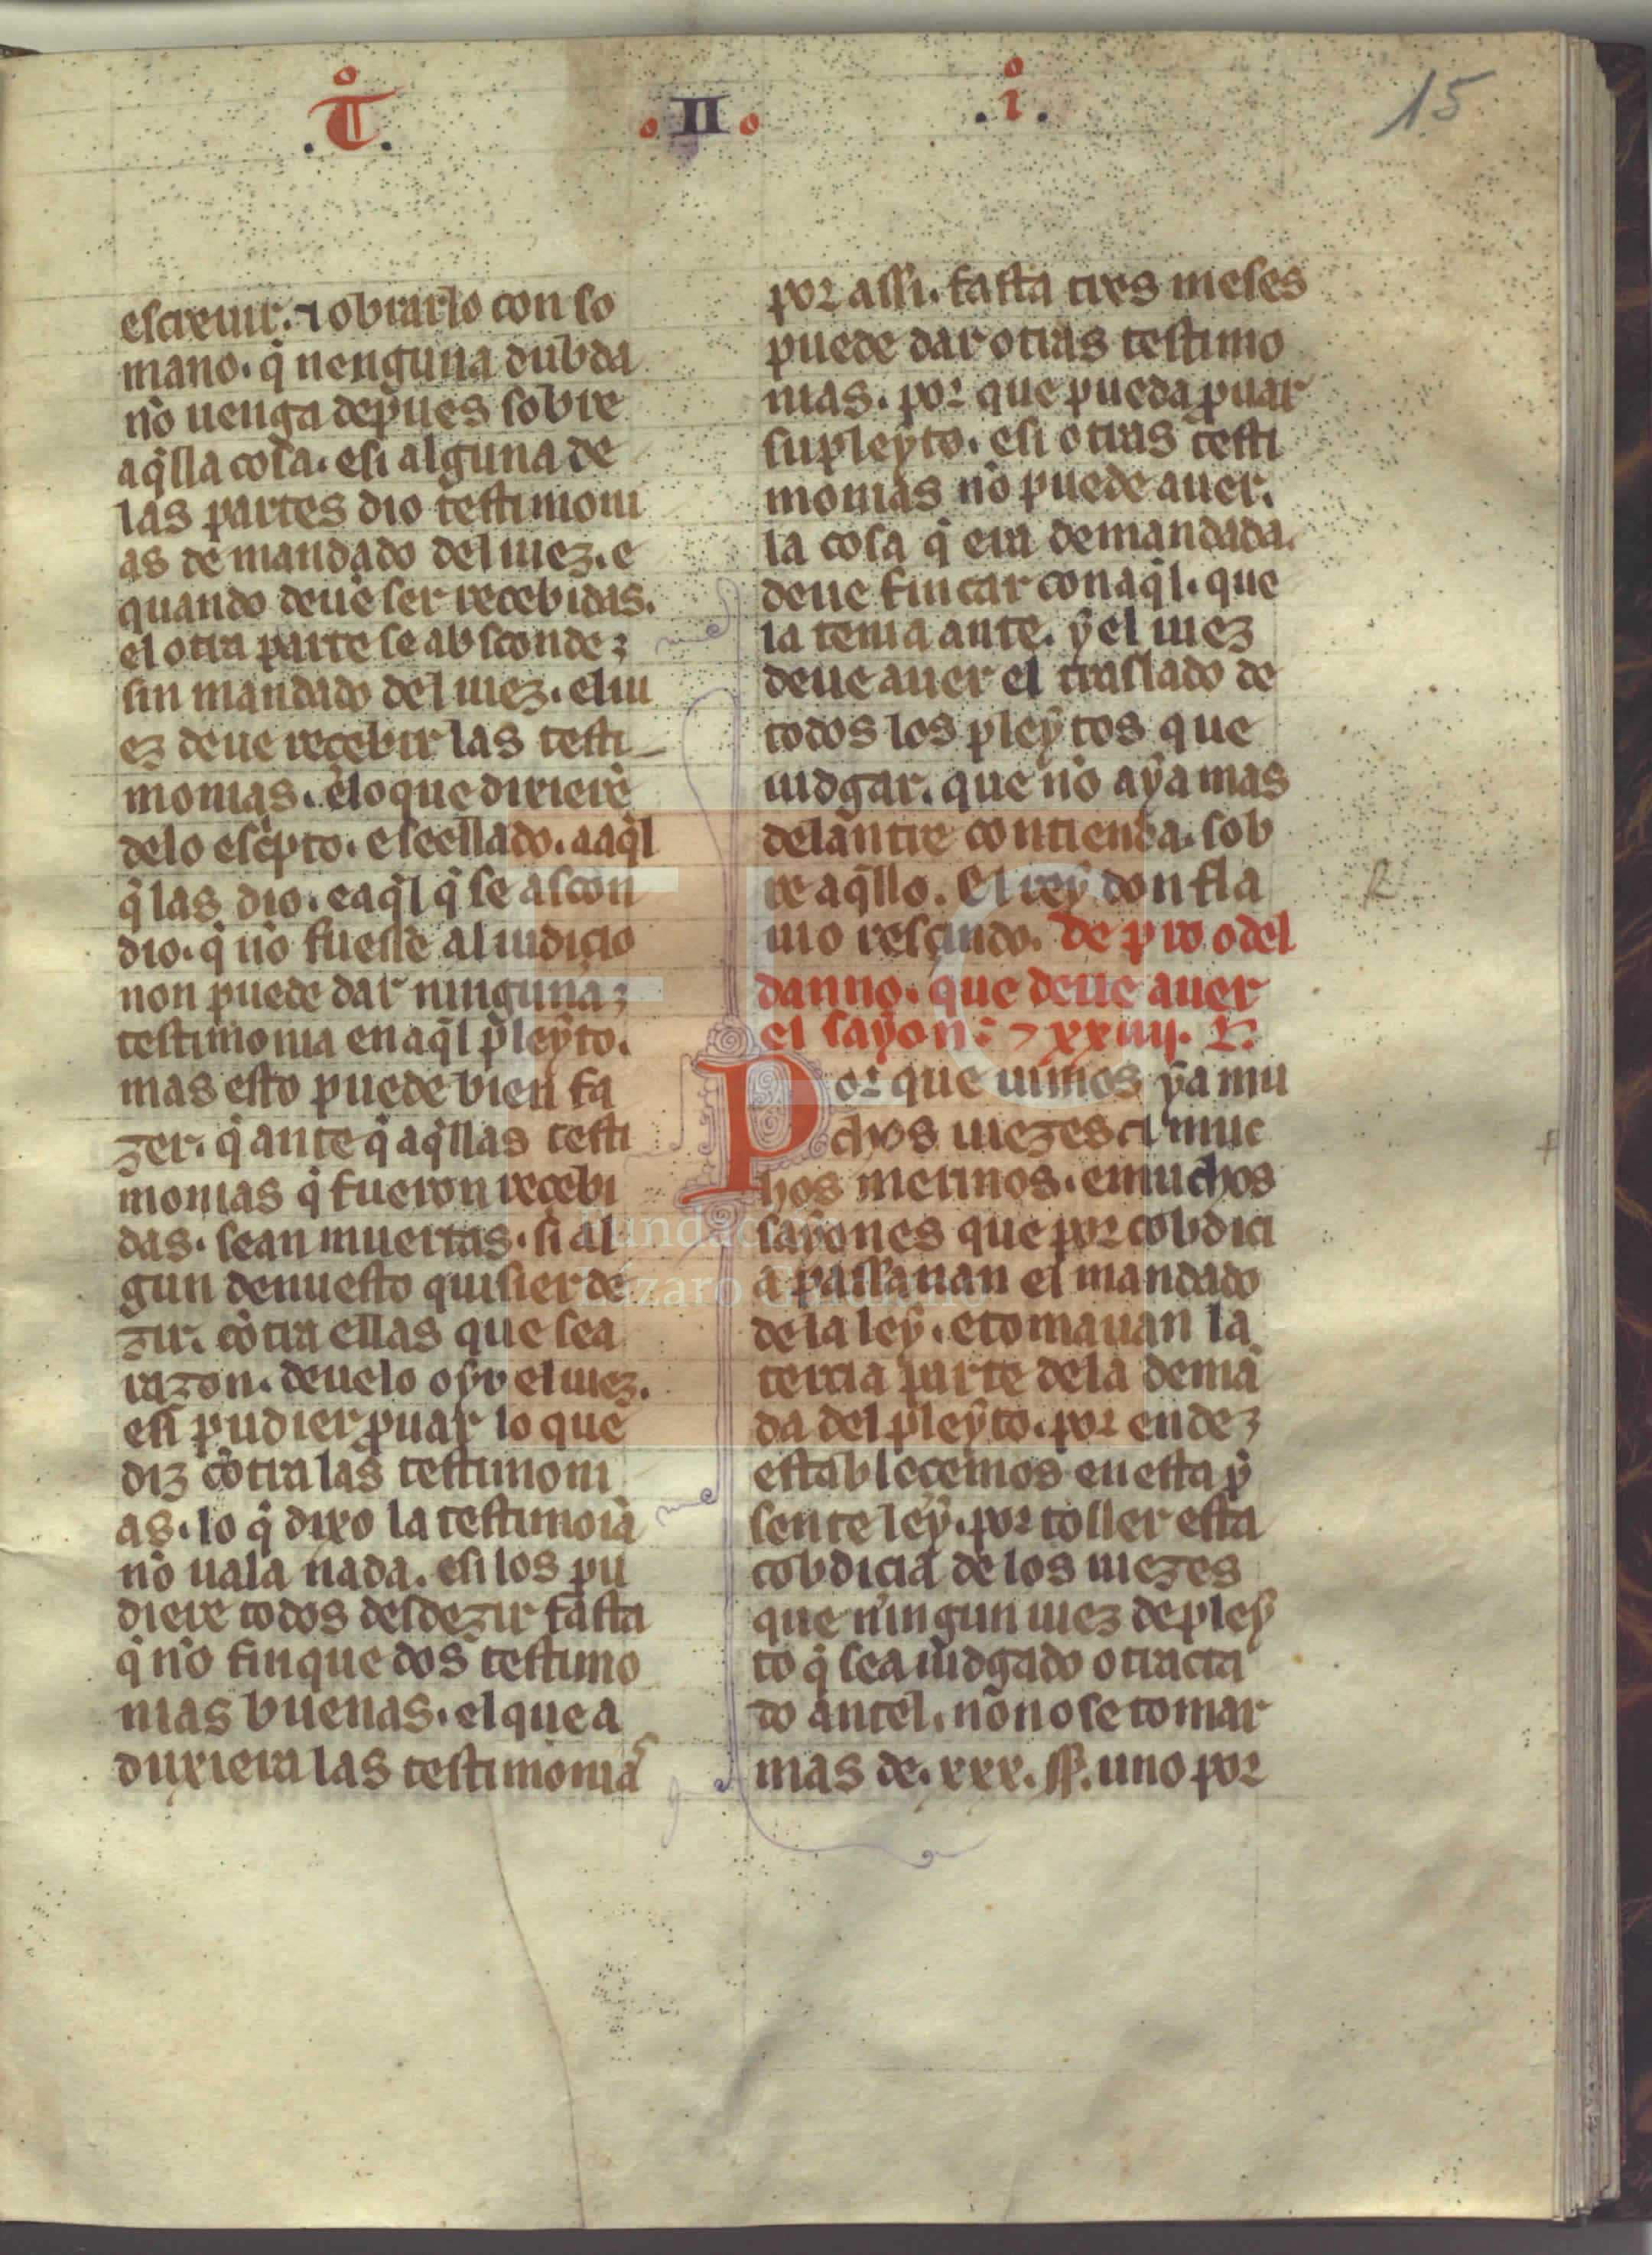 .T̊. .II. .i̊. 15
escreuir. ⁊ obrarlo con so
mano. q̇ nenguna dubda
nõ uenga depues sobre
aq̇lla cosa. esi alguna de
las partes dio testimoni
as de mandado del iuez. e
quando deuẽ ser recebidas.
el otra parte se absconde;
sin mandado del iuez. el iu
ez deue recebir las testi
monias. elo que dixierẽ
delo escͥpto. e seellado. a aq̇l
q̇ las dio. e aq̇l q̇ se ascon
dio. q̇ nõ fuesse al iudicio
non puede dar ninguna;
testimonia en aq̇l pleẏto.
mas esto puede bien fa
zer. q̇ ante q̇ aq̇llas testi
monias q̇ fueron recebi
das. sean muertas. si al
gun denuesto quisier de
zir. cõtra ellas que sea
razon. deuelo oẏr el iuez.
esi pudier ꝓuar lo que
diz cõtra las testimoni
as. lo q̇ dixo la testimoĩa
nõ uala nada. esi los pu
diere todos desdezir fasta
q̇ nõ finque dos testimo
nias buenas. el que a
duxiera las testimoniaˢ
por assi. fasta tres meses
puede dar otras testimo
nias. por que pueda ꝓuar
su pleẏto. esi otras testi
monias nõ puede auer.
la cosa q̇ era demandada.
deue fincar con aq̇l. que
la tenia ante. ẏ el iuez
deue auer el traslado de
todos los pleẏtos que
iudgar. que nõ aẏa mas
delantre contienda. sob
re aq̇llo. El reẏ don fla
uio rescindo. De pro o del
danno. que deue auer
el saẏon: ⁊ xxiiij. L.
R
Por que uimos ẏa mu
chos iuezes ⁊ muc
hos merinos. e muchos
saẏones que por cobdici
a passauan el mandado
de la leẏ. e tomauan la
tercia parte dela demã
da del pleẏto. por ende;
establecemos en esta p̱ͥ
sente leẏ. por toller esta
cobdicia de los iuezes
que ningun iuez de pleẏ
to q̇ sea iudgado o tracta
do antel. nõ no se tomar
mas de. xxx. ss. uno por
Fundación
Lázaro Galdiano